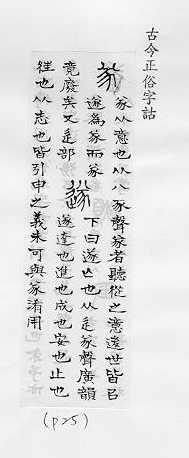 古今正俗字詁
㒸
㒸从意也从八豕聲㒸者聽從之意後世皆㠯
遂為㒸而㒸
竟廢矣又辵部
遂
下曰遂亾也从辵㒸聲廣韻
遂達也進也成也安也止也
往也从志也皆引申之義未可與㒸淆用
(p25)